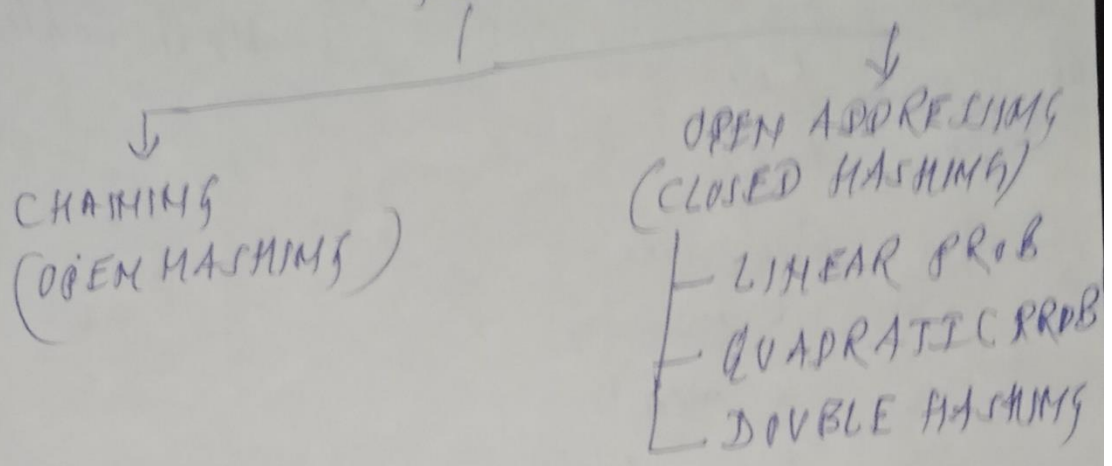 CHAINING
(OPEN HASHING)
OPEN ADDRESSING
(CLOSED HASHING)
LINEAR PROB
QUADRATIC PROB
DOUBLE HASHING